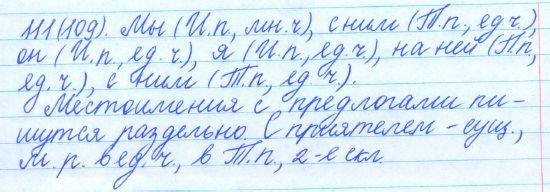 111(109). Мы (И.п., мн.ч), с ним (Т.п., ед.ч.),
он (И.п., ед.ч.), я (И.п., ед.ч.), на ней (П.п,
ед.ч.), с ним (Т.п, ед.ч.).
Местоимения с предлогами пи-
шутся раздельно. С приятелем - сущ.,
м.р. в ед.ч., в Т.п., 2-е скл.